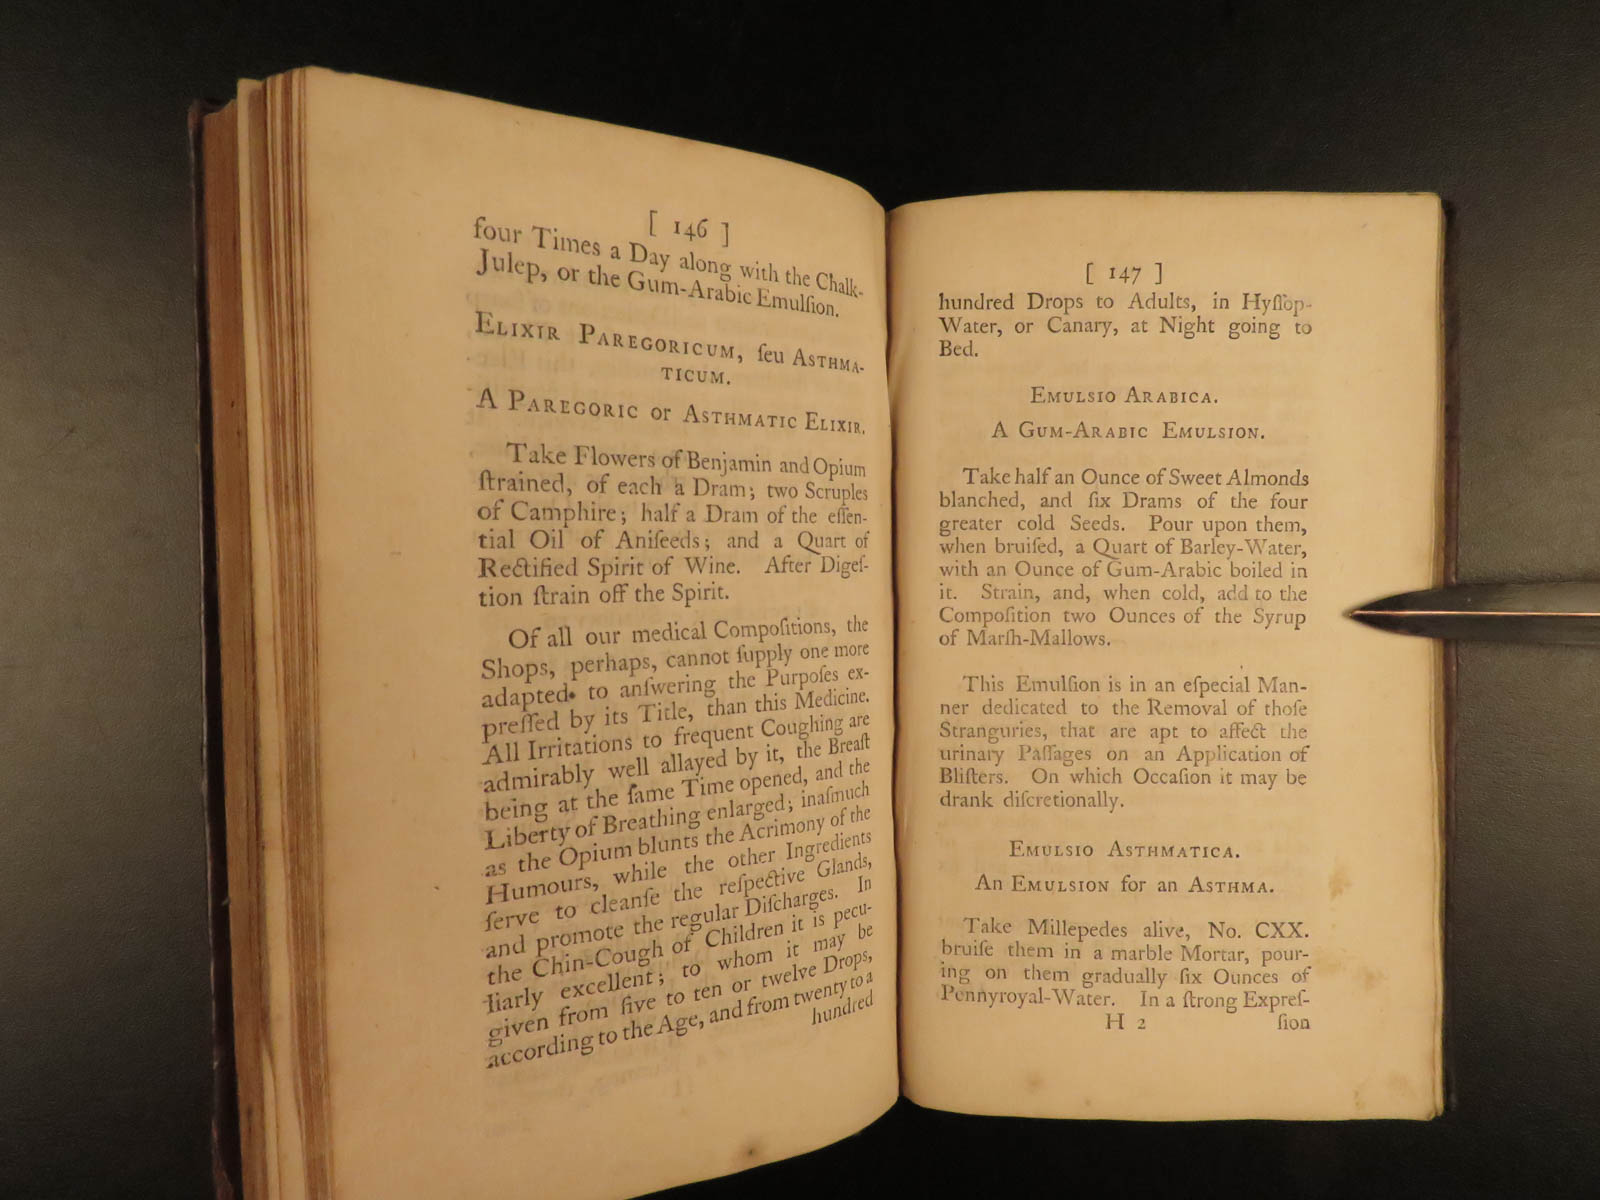 [ 146 ]
four Times a Day along with the Chalk-
Julep, or the Gum-Arabic Emulſion.
ELIXIR PAREGORICUM, ſeu ASTHMA-
TICUM.
A PAREGORIC or ASTHMATIC ELIXIR.
Take Flowers of Benjamin and Opium
ſtrained, of each a Dram; two Scruples
of Camphire; half a Dram of the eſſen-
tial Oil of Aniſeeds; and a Quart of
Rectified Spirit of Wine. After Digeſ-
tion ſtrain off the Spirit.
Of all our medical Compoſitions, the
Shops, perhaps, cannot ſupply one more
adapted to anſwering the Purpoſes ex-
preſſed by its Title, than this Medicine.
All Irritations to frequent Coughing are
admirably well allayed by it, the Breaſt
being at the ſame Time opened, and the
Liberty of Breathing enlarged; inaſmuch
as the Opium blunts the Acrimony of the
Humours, while the other Ingredients
ſerve to cleanſe the reſpective Glands,
and promote the regular Diſcharges. In
the Chin-Cough of Children it is pecu-
liarly excellent; to whom it may be
given from five to ten or twelve Drops,
according to the Age, and from twenty to a
hundred
[ 147 ]
hundred Drops to Adults, in Hyſſop-
Water, or Canary, at Night going to
Bed.
EMULSIO ARABICA.
A GUM-ARABIC EMULSION.
Take half an Ounce of Sweet Almonds
blanched, and ſix Drams of the four
greater cold Seeds. Pour upon them,
when bruiſed, a Quart of Barley-Water,
with an Ounce of Gum-Arabic boiled in
it. Strain, and, when cold, add to the
Compoſition two Ounces of the Syrup
of Marſh-Mallows.
This Emulſion is in an eſpecial Man-
ner dedicated to the Removal of thoſe
Stranguries, that are apt to affect the
urinary Paſſages on an Application of
Bliſters. On which Occaſion it may be
drank diſcretionally.
EMULSIO ASTHMATICA.
An EMULSION for an ASTHMA.
Take Millepedes alive, No. CXX.
bruiſe them in a marble Mortar, pour-
ing on them gradually ſix Ounces of
Pennyroyal-Water. In a ſtrong Expreſ-
H 2 ſion